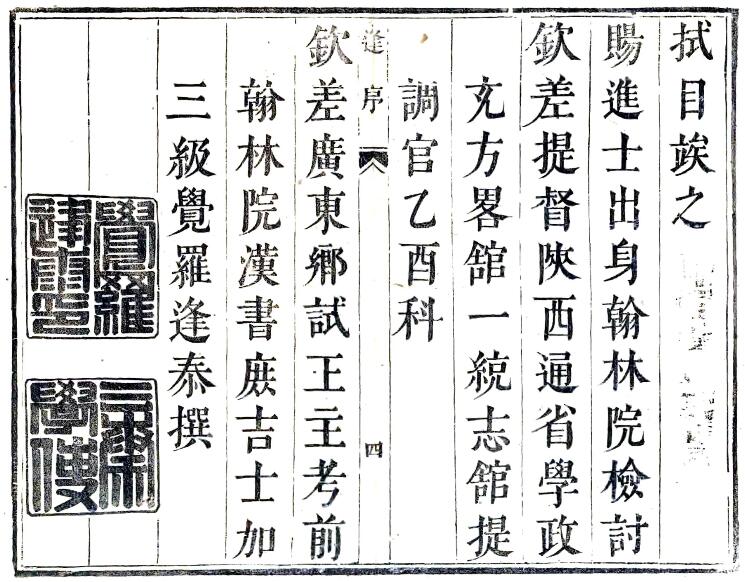 拭目竢之
賜進士出身翰林院檢討
欽差提督陝西通省學政
充方畧館一統志館提
調官乙酉科
逢序 四
欽差廣東鄉試正主考前
翰林院漢書庶吉士加
三級覺羅逢泰撰
覺羅